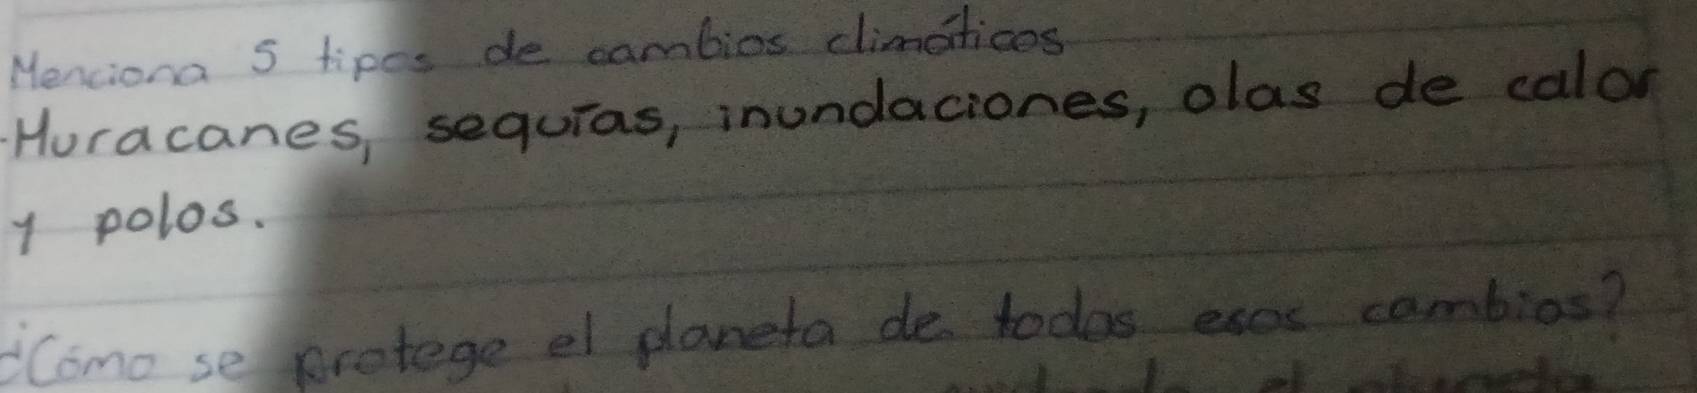 Menciona 5 tipos de cambios climáticos
Huracanes, sequías, inundaciones, olas de calor
y polos.
¿Cómo se protege el planeta de todos esos cambios?